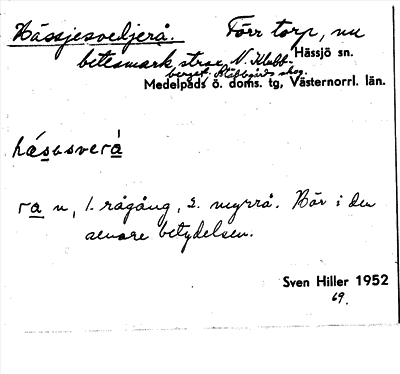 Hässjesvedjerå. Förr torp, nu
betesmark strax N. Klubb-
Hässjö sn.
berget. Klubbgårds skog.
Medelpads ö. doms. tg, Västernorrl. län.
hásasverá
ra n, 1. rågång, 2. myrrå. Här i den
senare betydelsen.
Sven Hiller 1952
69.